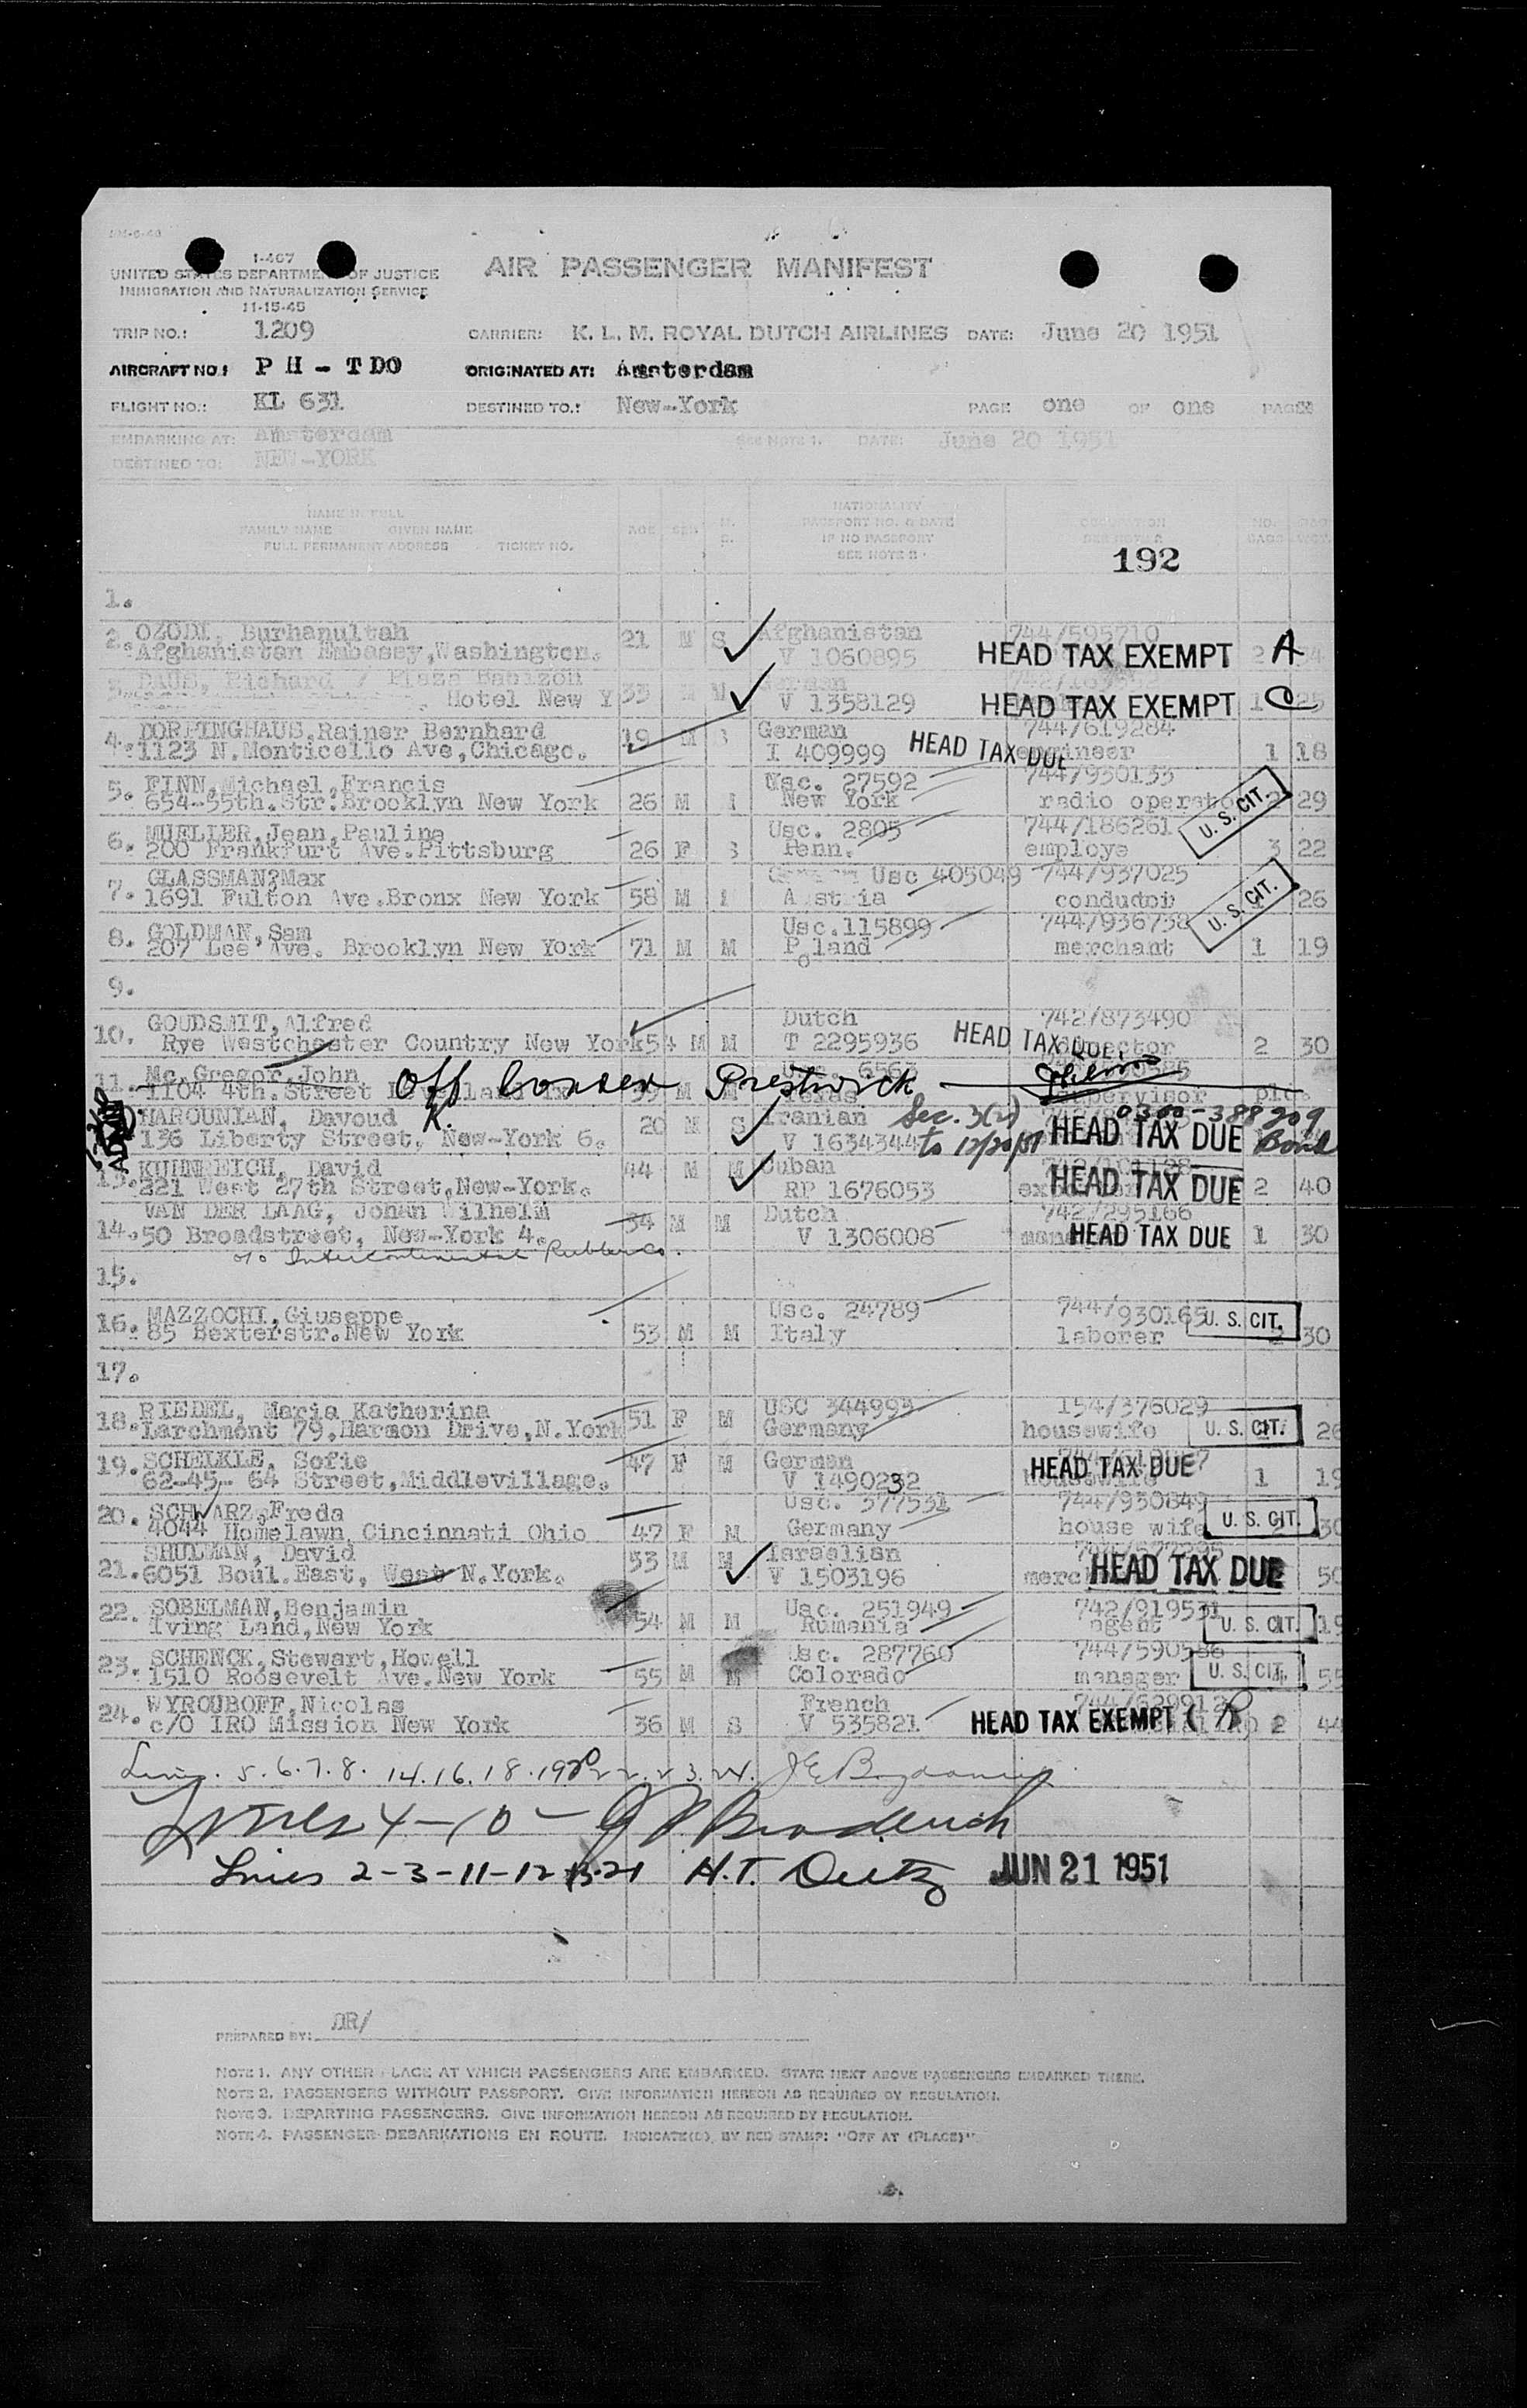 1-407
UNITED STATES DEPARTMENT OF JUSTICE
IMMIGRATION AND NATURALIZATION SERVICE
11-15-45
AIR PASSENGER MANIFEST
TRIP NO.: 1209 CARRIER: K. L. M. ROYAL DUTCH AIRLINES DATE: June 20 1951
AIRCRAFT NO.: P H - T D O ORIGINATED AT: Amsterdam
FLIGHT NO.: KL 631 DESTINED TO.: New-York PAGE one OF one PAGES
EMBARKING AT: Amsterdam SEE NOTE 1. DATE: June 20 1951
DESTINED TO: NEW-YORK
NAME IN FULL
FAMILY NAME GIVEN NAME
FULL PERMANENT ADDRESS TICKET NO.
AGE SEX M. S.
NATIONALITY
PASSPORT NO. & DATE
IF NO PASSPORT
SEE NOTE 2
OCCUPATION
NO. BAGS
192
1.
2. OZODI, Burhanultah 21 M S Afghanistan 744/595710
Afghanistan Embassy, Washington. V 1060895 HEAD TAX EXEMPT A
3. DAUS, Richard / Plaza Babizon 33 M German
Hotel New Y V 1358129 HEAD TAX EXEMPT C
4. DORPINGHAUS, Rainer Bernhard 19 M German 744/619284
1123 N. Monticello Ave, Chicago. I 409999 HEAD TAX DUE engineer 1 18
5. FINN, Michael, Francis Usc. 27592 744/930133
654-55th. Str. Brooklyn New York 26 M New York radio operator 2 29
U. S. CIT.
6. MUELLER, Jean, Paulina Usc. 2805 744/186261
200 Frankfurt Ave. Pittsburg 26 F S Penn. employe 3 22
7. GLASSMAN?Max Usc 405049 744/937025
1691 Fulton Ave. Bronx New York 58 M Austria condutor 26
U. S. CIT.
8. GOLDMAN, Sam Usc. 115899 744/936738
207 Lee Ave. Brooklyn New York 71 M M Poland merchant 1 19
9.
10. GOUDSMIT, Alfred Dutch 742/873490
Rye Westchester Country New York 54 M M T 2295936 HEAD TAX DUE 2 30
11. Mc. Gregor, John Usc. 6563
1104 4th. Street M M Texas supervisor
Off loaded Prestwick
12. HAROUNIAN, Davoud 20 M S Iranian Sec. 3(2) 0300-388209
136 Liberty Street, New-York 6. V 1634344 to 12/20/51 HEAD TAX DUE Bond
ADMIN
13. KUHNREICH, David 44 M M Cuban
221 West 27th Street, New-York. RP 1676053 HEAD TAX DUE 2 40
14. VAN DER LAAG, Johan Wilhelm 34 M M Dutch 742/295166
50 Broadstreet, New-York 4. V 1306008 HEAD TAX DUE 1 30
c/o Intercontinental Rubber Co.
15.
16. MAZZOCHI, Giuseppe Usc. 24789 744/930165
85 Bexterstr. New York 53 M M Italy laborer U. S. CIT. 2 30
17.
18. RIEDEL, Maria Katherina 51 F M USC 344993 154/376029
Larchmont 79, Harmon Drive, N. York Germany housewife U. S. CIT. 26
19. SCHEIKLE, Sofie 47 F M German
62-45- 64 Street, Middlevillage. V 1490232 HEAD TAX DUE 1 19
20. SCHWARZ, Freda Usc. 377531 744/930849
4044 Homelawn Cincinnati Ohio 47 F M Germany house wife U. S. CIT. 30
21. SHULMAN, David 53 M M Israelian
6051 Boul. East, West N. York. V 1503196 HEAD TAX DUE 50
22. SOBELMAN, Benjamin Usc. 251949 742/919531
Iving Land, New York 54 M M Rumania agent U. S. CIT. 19
23. SCHENCK, Stewart, Howell Usc. 287760 744/590586
1510 Roosevelt Ave. New York 55 M M Colorado manager U. S. CIT. 55
24. WYROUBOFF, Nicolas French 744/629912
c/O IRO Mission New York 36 M S V 535821 HEAD TAX EXEMPT (R) 2 44
5. 6. 7. 8. 14. 16. 18. 19 22. 23. 24.
Lines 4-10
Lines 2-3-11-12-13-21 H.T. JUN 21 1951
PREPARED BY: DR/
NOTE 1. ANY OTHER PLACE AT WHICH PASSENGERS ARE EMBARKED. STATE NEXT ABOVE PASSENGERS EMBARKED THERE.
NOTE 2. PASSENGERS WITHOUT PASSPORT. GIVE INFORMATION HEREON AS REQUIRED BY REGULATION.
NOTE 3. DEPARTING PASSENGERS. GIVE INFORMATION HEREON AS REQUIRED BY REGULATION.
NOTE 4. PASSENGER DEBARKATIONS EN ROUTE. INDICATE(D) BY RED STAMP: "OFF AT (PLACE)"